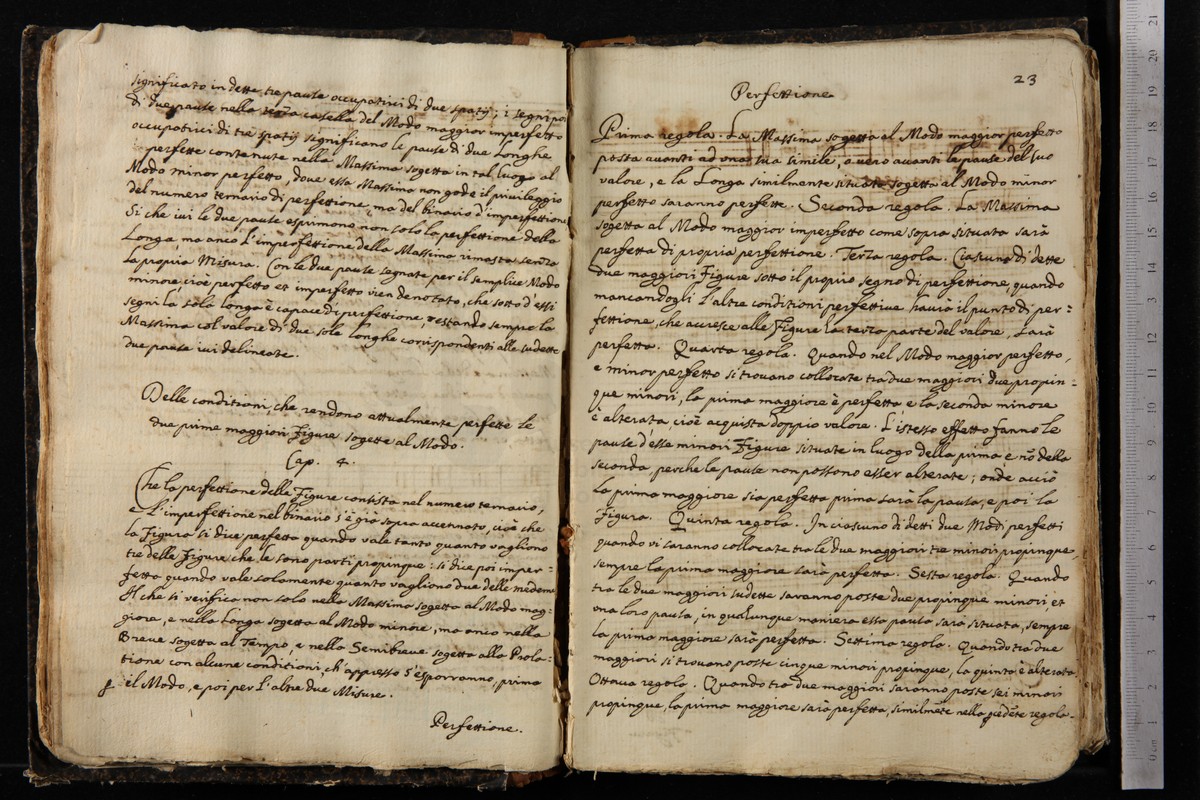 significato in dette tre pause occupatrici di due spatij; i segni poi
di due pause nella terza casella del Modo maggior imperfetto
occupatrici di trè spatij significano le pause di due Longhe
perfette contenute nella Massima sogetta in tal luogo al
Modo minor perfetto, doue essa Massima non gode il priuileggio
del numero ternario di perfettione, ma del binario d'imperfettione
Si che iui le due pause esprimono non solo la perfettione della
Longa, ma anco l'imperfettione della Massima rimasta senza
la propria Misura. Con le due pause segnate per il semplice Modo
minore, cioè perfetto et imperfetto vien denotato, che sotto d'essi
segni la sola Longa è capace di perfettione, restando sempre la
Massima col valore di due sole Longhe corrispondenti alle sudette
due pause iui delineate.
Delle conditioni, che rendono attualmente perfette le
due prime maggiori Figure sogette al Modo.
Cap. 4.
Che la perfettione delle Figure consista nel numero ternario,
e l'imperfettione nel binario s'è già sopra accennato, cioè che
la Figura si dice perfetta quando vale tanto quanto vagliono
tre delle Figure, che le sono parti propinque: si dice poi imper=
fetta quando vale solamente quanto vagliono due delle medeme
Il che si verifica non solo nella Massima sogetta al Modo mag=
giore, e nella Longa sogetta al Modo minore, ma anco nella
Breue sogetta al Tempo, e nella Semibreue sogetta alla Prola=
tione con alcune conditioni, ch'appresso s'esporranno, prima
il Modo, e poi per l'altre due Misure.
Perfettione.
23
Perfettione
Prima regola. La Massima sogetta al Modo maggior perfetto
posta auanti ad una sua simile, o uero auanti le pause del suo
valore, e la Longa similmente situata sogetta al Modo minor
perfetto saranno perfette. Seconda regola. La Massima
sogetta al Modo maggior imperfetto come sopra situata sarà
perfetta di propria perfettione. Terza regola. Ciascuna di dette
due maggiori Figure sotto il proprio segno di perfettione, quando
mancandogli l'altre conditioni perfettiue haurà il punto di per=
fettione, che accresce alle Figure la terza parte del valore, sarà
perfetta. Quarta regola. Quando nel Modo maggior perfetto,
e minor perfetto si trouano collocate tra due maggiori due propin=
que minori, la prima maggiore è perfetta e la seconda minore
è alterata, cioè acquista doppio valore. L'istesso effetto fanno le
pause d'esse minori Figure situate in luogo della prima e nō della
seconda, perche le pause non possono esser alterate; onde acciò
la prima maggiore sia perfetta prima sarà la pausa, e poi la
Figura. Quinta regola. In ciascuno di detti due Modi perfetti
quando vi saranno collocate tra le due maggiori tre minori propinque,
sempre la prima maggiore sarà perfetta. Sesta regola. Quando
tra le due maggiori sudette saranno poste due propinque minori et
una loro pausa, in qualunque maniera essa pausa sarà situata, sempre
la prima maggiore sarà perfetta. Settima regola. Quando tra due
maggiori si trouano poste cinque minori propinque, la quinta è alterata.
Ottaua regola. Quando tra due maggiori saranno poste sei minori
propinque, la prima maggiore sarà perfetta, similmēte nella pedēte regola.